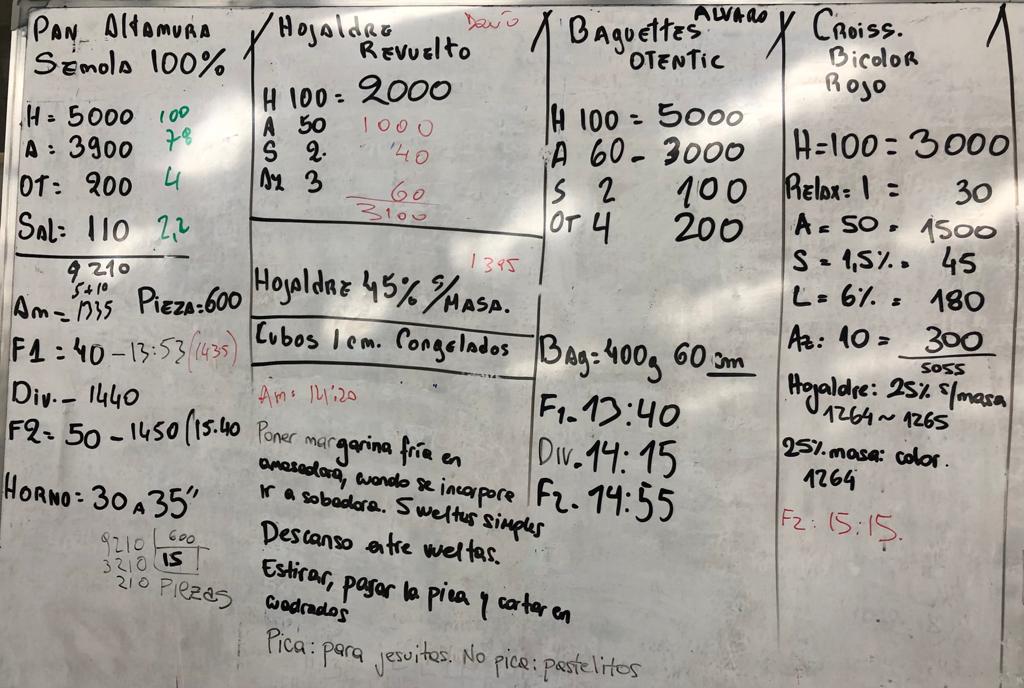 PAN ALTAMURA
SEMOLA 100%
H = 5000 100
A = 3900 78
OT = 200 4
SAL = 110 2,2
9210
5+10
Am = 1335 PIEZA=600
F1 = 40 - 13:53 (1435)
Div. - 1440
F2 = 50 - 1450 (15.40
HORNO = 30 A 35"
9210 600
3210 15
210 PIEZAS
Hojaldre Dario
REVUELTO
H 100 = 2000
A 50 1000
S 2. 40
Az 3 60
3100
1395
Hojaldre 45% s/MASA.
Cubos 1 cm. Congelados
Am: 14:20
Poner margarina fría en
amasadora, cuando se incorpore
ir a sobadora. 5 vueltas simples
Descanso entre vueltas.
Estirar, pasar la pica y cortar en
cuadrados
Pica: para jesuitas. No pica: pastelitos
ALVARO
BAGUETTES
OTENTIC
H 100 = 5000
A 60 - 3000
S 2 100
OT 4 200
BAG = 400g 60 cm
F1. 13:40
DIV. 14:15
F2. 14:55
CROISS.
Bicolor
Rojo
H=100 = 3000
Relax = 1 = 30
A = 50 = 1500
S = 1,5% = 45
L = 6% = 180
Az: 10 = 300
5055
Hojaldre: 25% s/masa
1264 ~ 1265
25% masa: color.
1264
F2: 15:15.